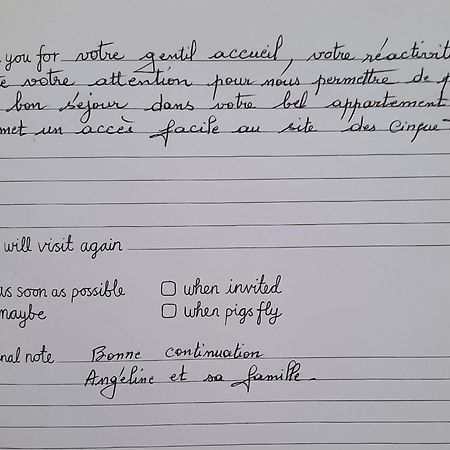 you for votre gentil accueil, votre réactivité
votre attention pour nous permettre de
bon séjour dans votre bel appartement
met un accès facile au site des Cinque
will visit again
as soon as possible when invited
maybe when pigs fly
nal note Bonne continuation
Angéline et sa famille.